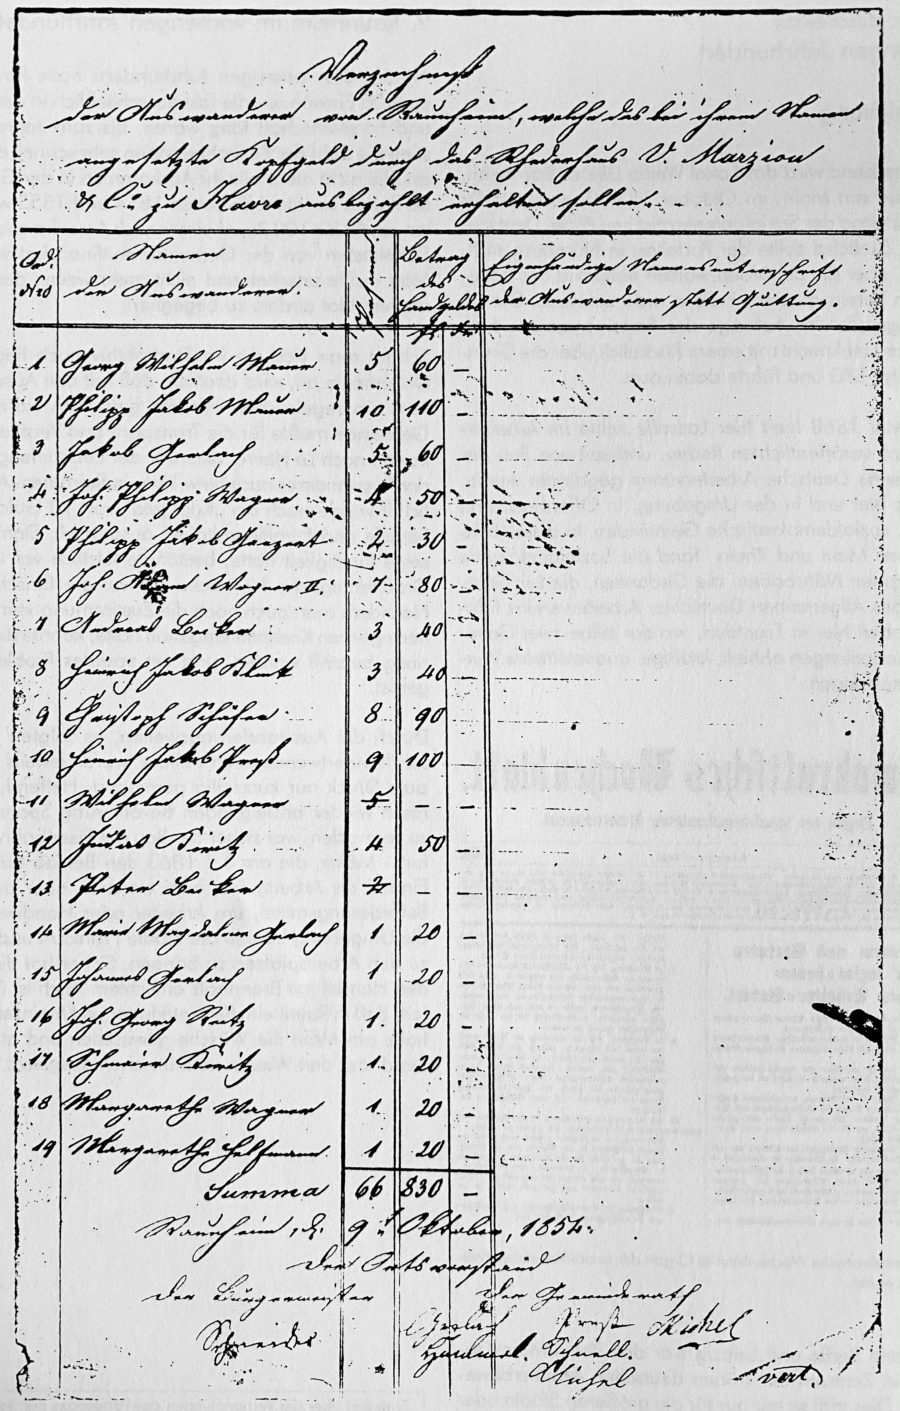 Verzeichniß
der Auswanderer von Raunheim, welche das bei ihrem Namen
angesetzte Kopfgeld durch das Rhederhaus V. Marzion
& Cie zu Havre ausbezahlt erhalten sollen.
Ord. Nro
Namen der Auswanderer.
Personen
Betrag des Handgeldes
fl kr
Eigenhändige Namensunterschrift der Auswanderer statt Quittung.
1 Georg Wilhelm Mauer 5 60 –
2 Philipp Jakob Mauer 10 110 –
3 Jakob Gerlach 5 60 –
4 Joh. Philipp Wagner 4 50 –
5 Philipp Jakob Genzert 2 30 –
6 Joh. Adam Wagner II. 7 80 –
7 Andreas Becker 3 40 –
8 Heinrich Jakob Klink 3 40 –
9 Christoph Schäfer 8 90 –
10 Heinrich Jakob Preß 9 100 –
11 Wilhelm Wagner 5 – –
12 Judas Kiritz 4 50 –
13 Peter Becker 2 – –
14 Marie Magdalene Gerlach 1 20 –
15 Johannes Gerlach 1 20 –
16 Joh. Georg 1 20 –
17 Schmaier Kiritz 1 20 –
18 Margarethe Wagner 1 20 –
19 Margarethe Helfmann 1 20 –
Summa 66 830 –
Raunheim, d. 9t Oktober, 1854.
Der Ortsvorstand
Der Bürgermeister Der Gemeinderath
Schneider Gerlach Preß Michel
Hummel. Schnell.
Michel vert.